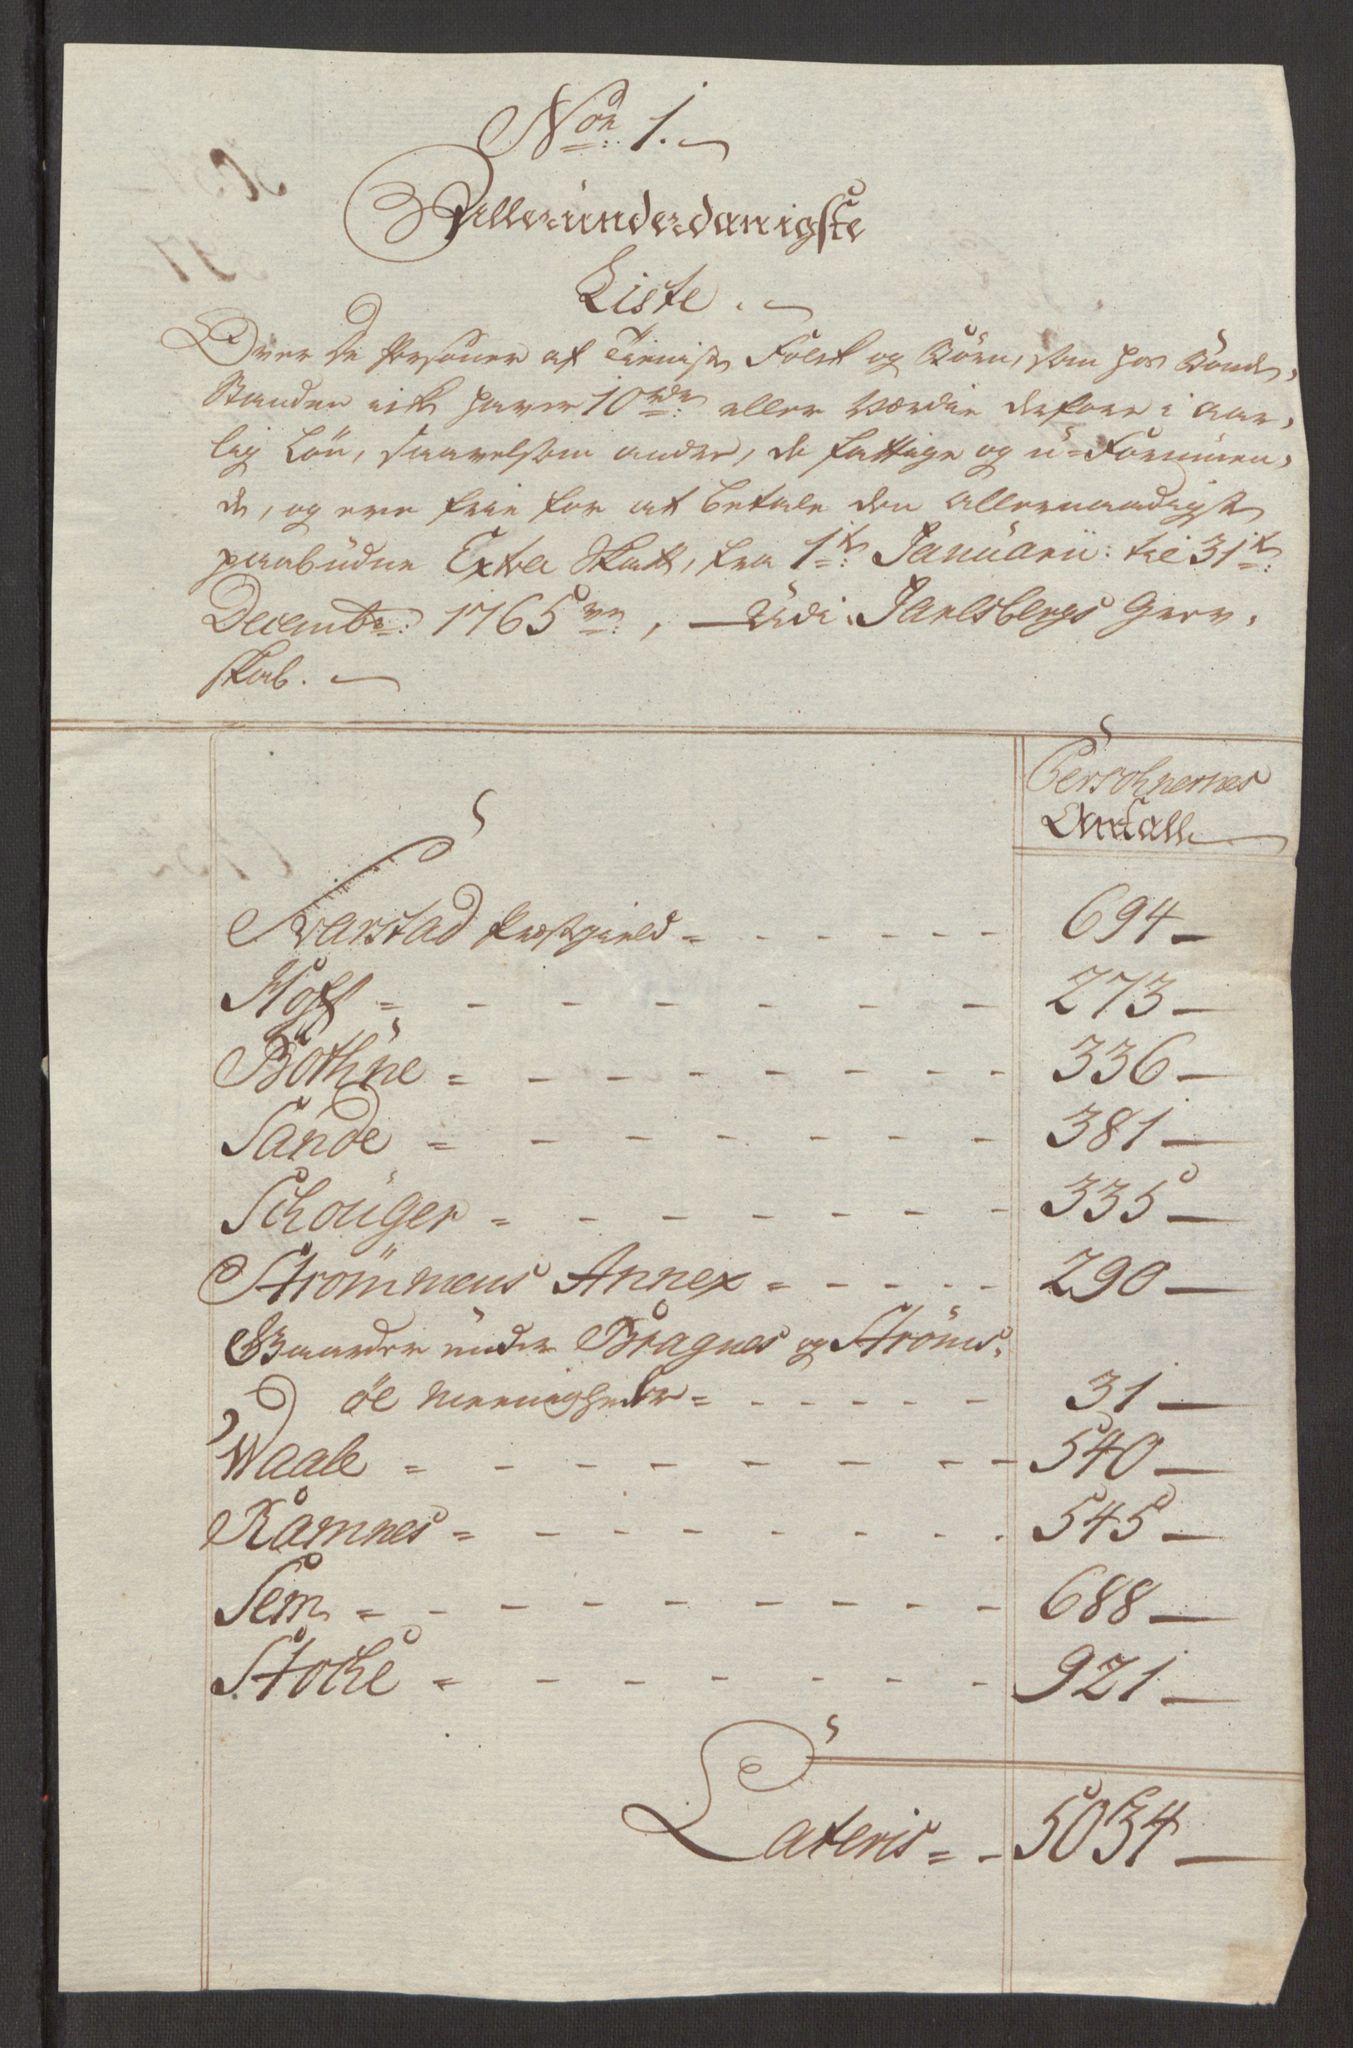 Nor 1.
Alleründerdanigste
Liste.
Over de Personer af Tieniste Folk og Börn, som hos Bonde-
Standen eik haver 10rdr: eller Værdie derfore i aar-
lig Lön, saavelsom andre, de fattige og u-Formuen-
de, og ere frie for at betale den allernaadigst
paabüdne Extra Skatt, fra 1te: Januarii: til 31te:
Decembr: 1765ve:, Udi Jarlsbergs Grev-
skab.
Persohnernes
Antall
Svarstad Præstegield = - - - - - 694 -
Hoff = - - - - - - - 273 -
Böthne = - - - - - - - 336 -
Sande = - - - - - - - 381 -
Schouger = - - - - - - - 335 -
Strömmens Annex = - - - - 290 -
Gaarder ünder Bragnes og Ströms-
öe Meenigheder = - - - - - 31 -
Waale = - - - - - - - 540 -
Ramnes = - - - - - - - 545 -
Sem = - - - - - - - - 688 -
Stocke = - - - - - - - 921 -
Lateris = - 5034 -